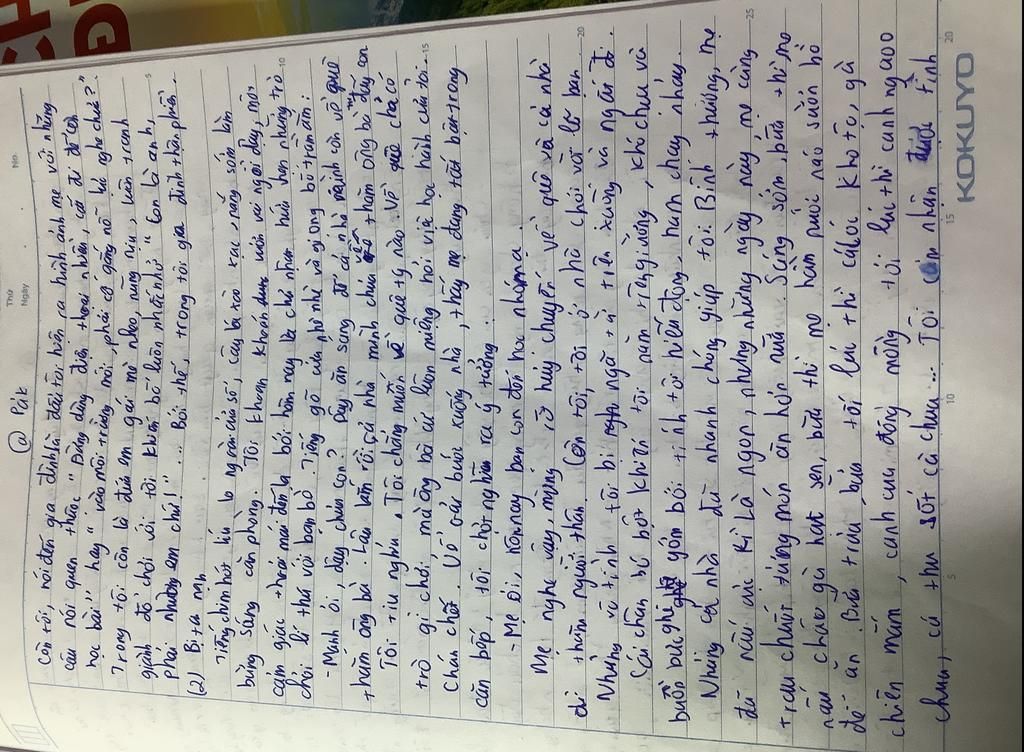 @ Pak
Thứ
Ngày
No.
Còn tôi, nói đến gia đình là đầu tôi hiện ra hình ảnh mẹ với những
câu nói quen thuộc "Đừng dùng điện thoại nhiều, cất đi để còn
học bài" hay " vào môi trường mới, phải cố gắng nỗ lực nghe chưa?"
Trong tôi còn là đứa em gái mè nheo, nũng nịu, luôn tranh
giành đồ chơi với tôi khiến bố luôn nhắc nhở " Con là anh,
phải nhường em chứ!"... Bởi thế, trong tôi gia đình thân phần
(2) B, ta mh
Tiếng chim hót líu lo ngoài cửa sổ, cây lá xào xạc, nắng sớm làm
bừng sáng căn phòng. Tôi khoan khoái vươn vai ngồi dậy, một
cảm giác thoải mái đến lạ bởi hôm nay là chủ nhật hứa hẹn những trò
chơi lí thú với bạn bè. Tiếng gõ cửa nhè nhẹ và giọng bố trầm ấm:
- Mạnh ơi, dậy chưa con? Dậy ăn sáng để cả nhà mình còn về quê
thăm ông bà. Lâu lắm rồi, cả nhà mình chưa về thăm ông bà đấy con
Tôi tiu nghỉu. Tôi chẳng muốn về quê tý nào. Về quê chả có
trò gì chơi, mà ông bà cứ luôn miệng hỏi việc học hành của tôi.
Chán chết. Uể oải bước xuống nhà, thấy mẹ đang tất bật trong
căn bếp, tôi chợt nghĩ ra ý tưởng.
- Mẹ ơi, hôm nay con học nhóm ạ.
Mẹ nghe vậy, mọi huỷ chuyến về quê và cả nhà
đi thăm người thân. Còn tôi, tôi ở nhà chơi với lũ bạn
Nhưng vô tình tôi bị ngã từ trên xuống và ngất đi.
Cái chân bó bột khiến tôi nằm trên giường, khó chịu và
buồn bực ghê gớm bởi tính tôi hiếu động, ham chạy nhảy.
Nhưng cả nhà đã nhanh chóng giúp tôi. Bình thường, mẹ
đã nấu ăn kĩ là ngon, nhưng những ngày này mẹ càng
trau chuốt từng món ăn hơn nữa. Sáng sớm, bữa thì mẹ
nấu cháo gà hạt sen, bữa thì mẹ hầm
để ăn. Bữa trưa, bữa tối lúc thì cá lóc kho tộ, gà
chiên mắm, canh cua đồng mồng tơi lúc thì canh ngao
chua, cá thu sốt cà chua... Tôi cảm nhận được tình
5
10
15
20
25
5
10
15
20
KOKUYO